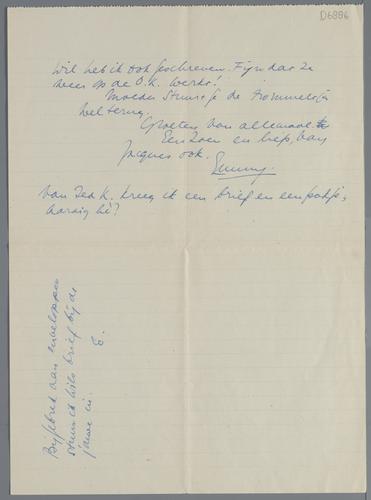 D6886
Wil heb ik ook geschreven. Fijn dat ze
weer op de O.K. werkt!
Moeder stuurt je de trommeltjes
wel terug.
Groeten van allemaal
Een zoen en liefs, van
Jacques ook.
Emmy.
Van Zea K. kreeg ik een brief en een pakje,
aardig hè?
Bij gebrek aan enveloppen
stuur ik Wils brief bij de
jouwe in.
E.